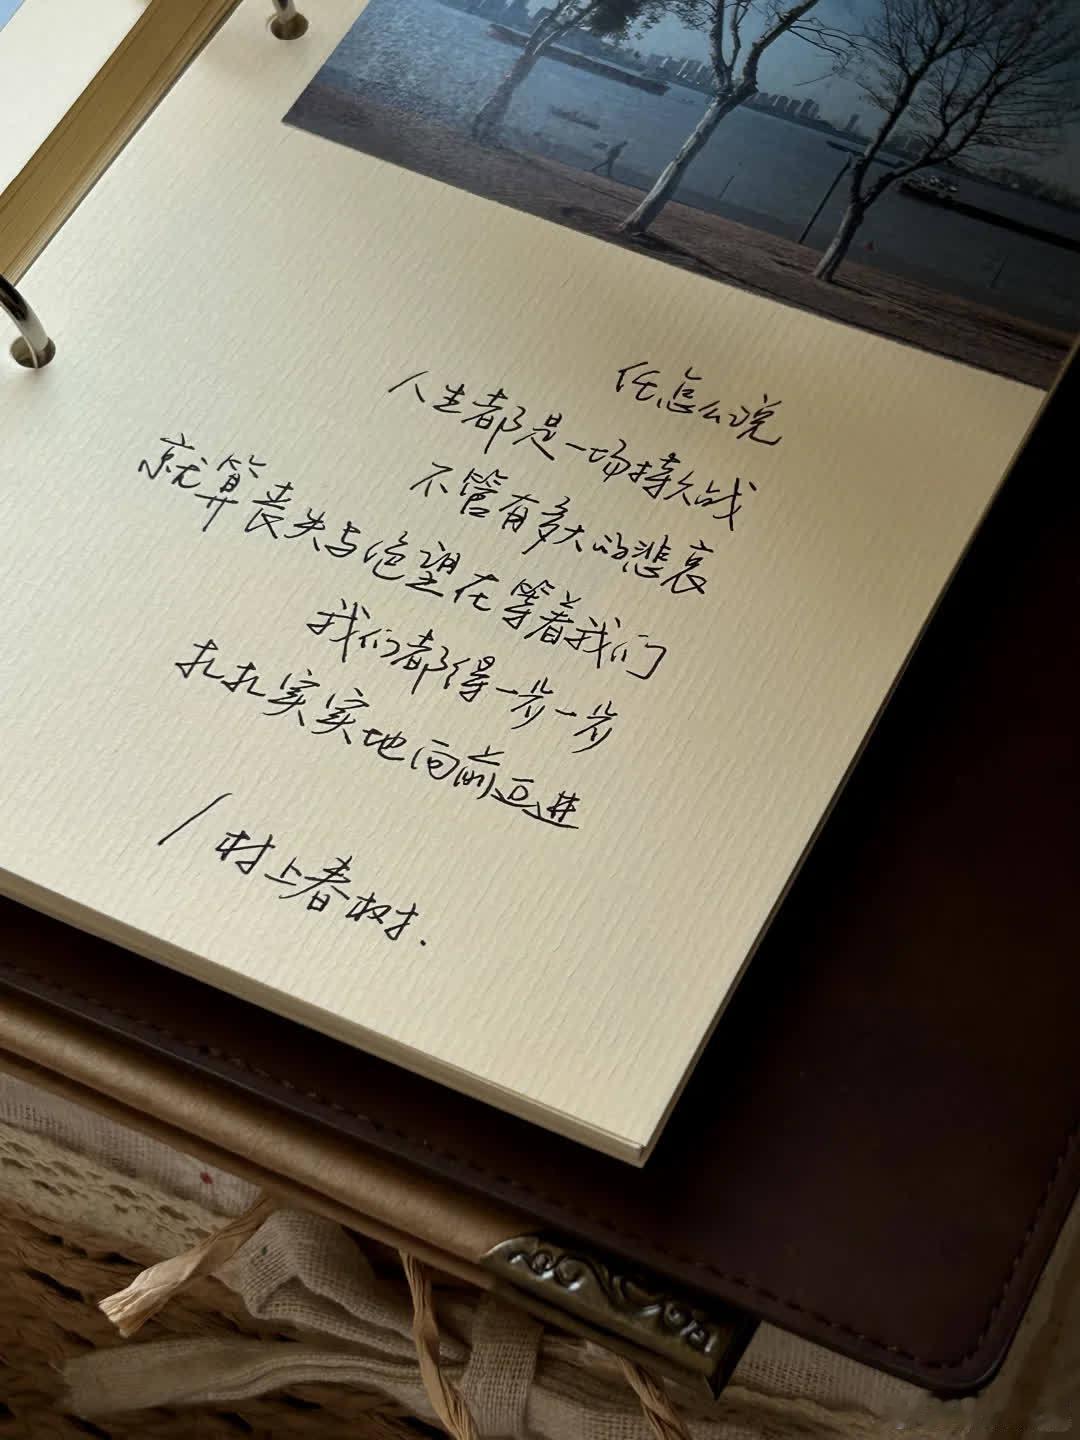 任怎么说
人生都是一场持久战
不管有多大的悲哀
就算丧失与绝望在等着我们
我们都得一步一步
扎扎实实地向前迈进
/村上春树.